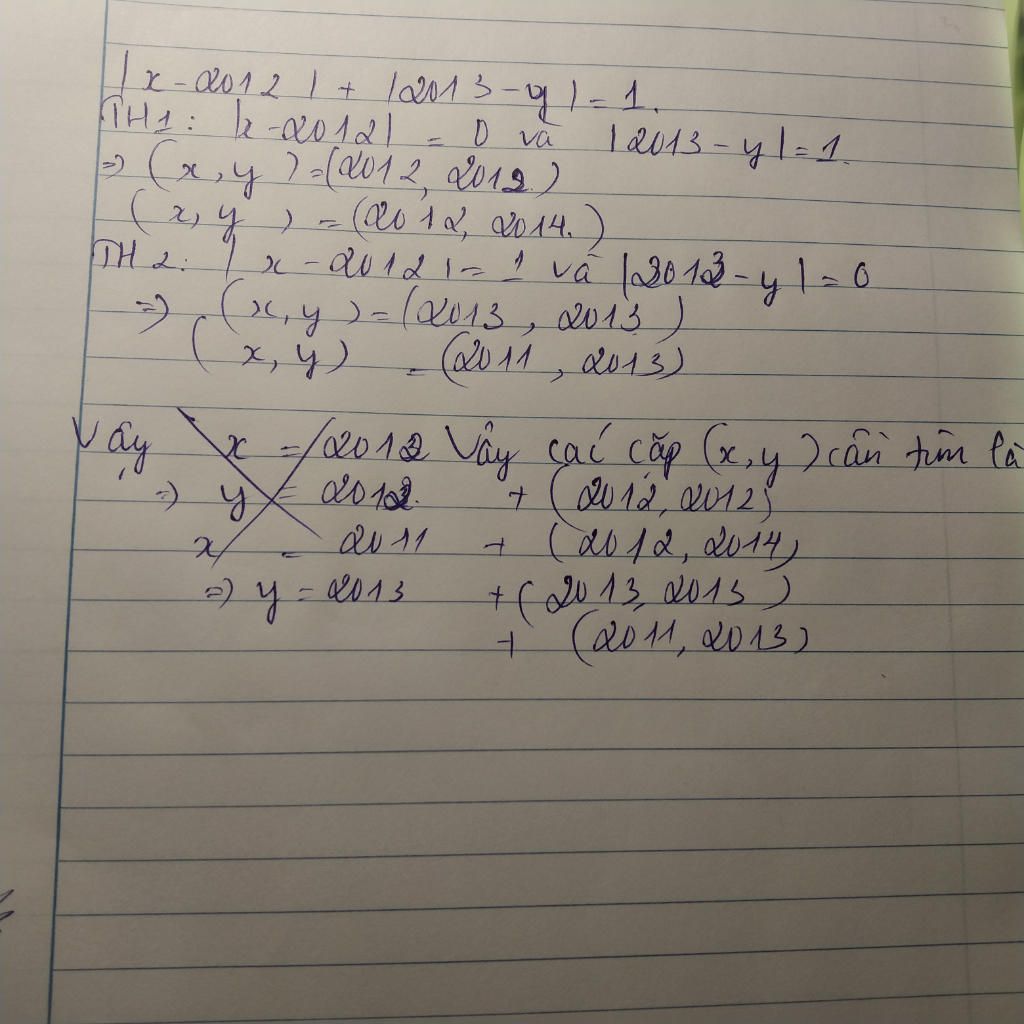 |x-2012| + |2013-y| = 1.
TH1: |x-2012| = 0 và |2013-y|=1.
=> (x,y)=(2012, 2012)
(x,y) =(2012, 2014.)
TH2: |x-2012|=1 và |2013-y|=0
=> (x,y)=(2013, 2013)
(x,y) =(2011, 2013)
Vậy x = 2012 Vậy các cặp (x,y) cần tìm là
=> y = 2012. + (2012, 2012)
x = 2011 + (2012, 2014)
=> y = 2013 + (2013, 2013)
+ (2011, 2013)